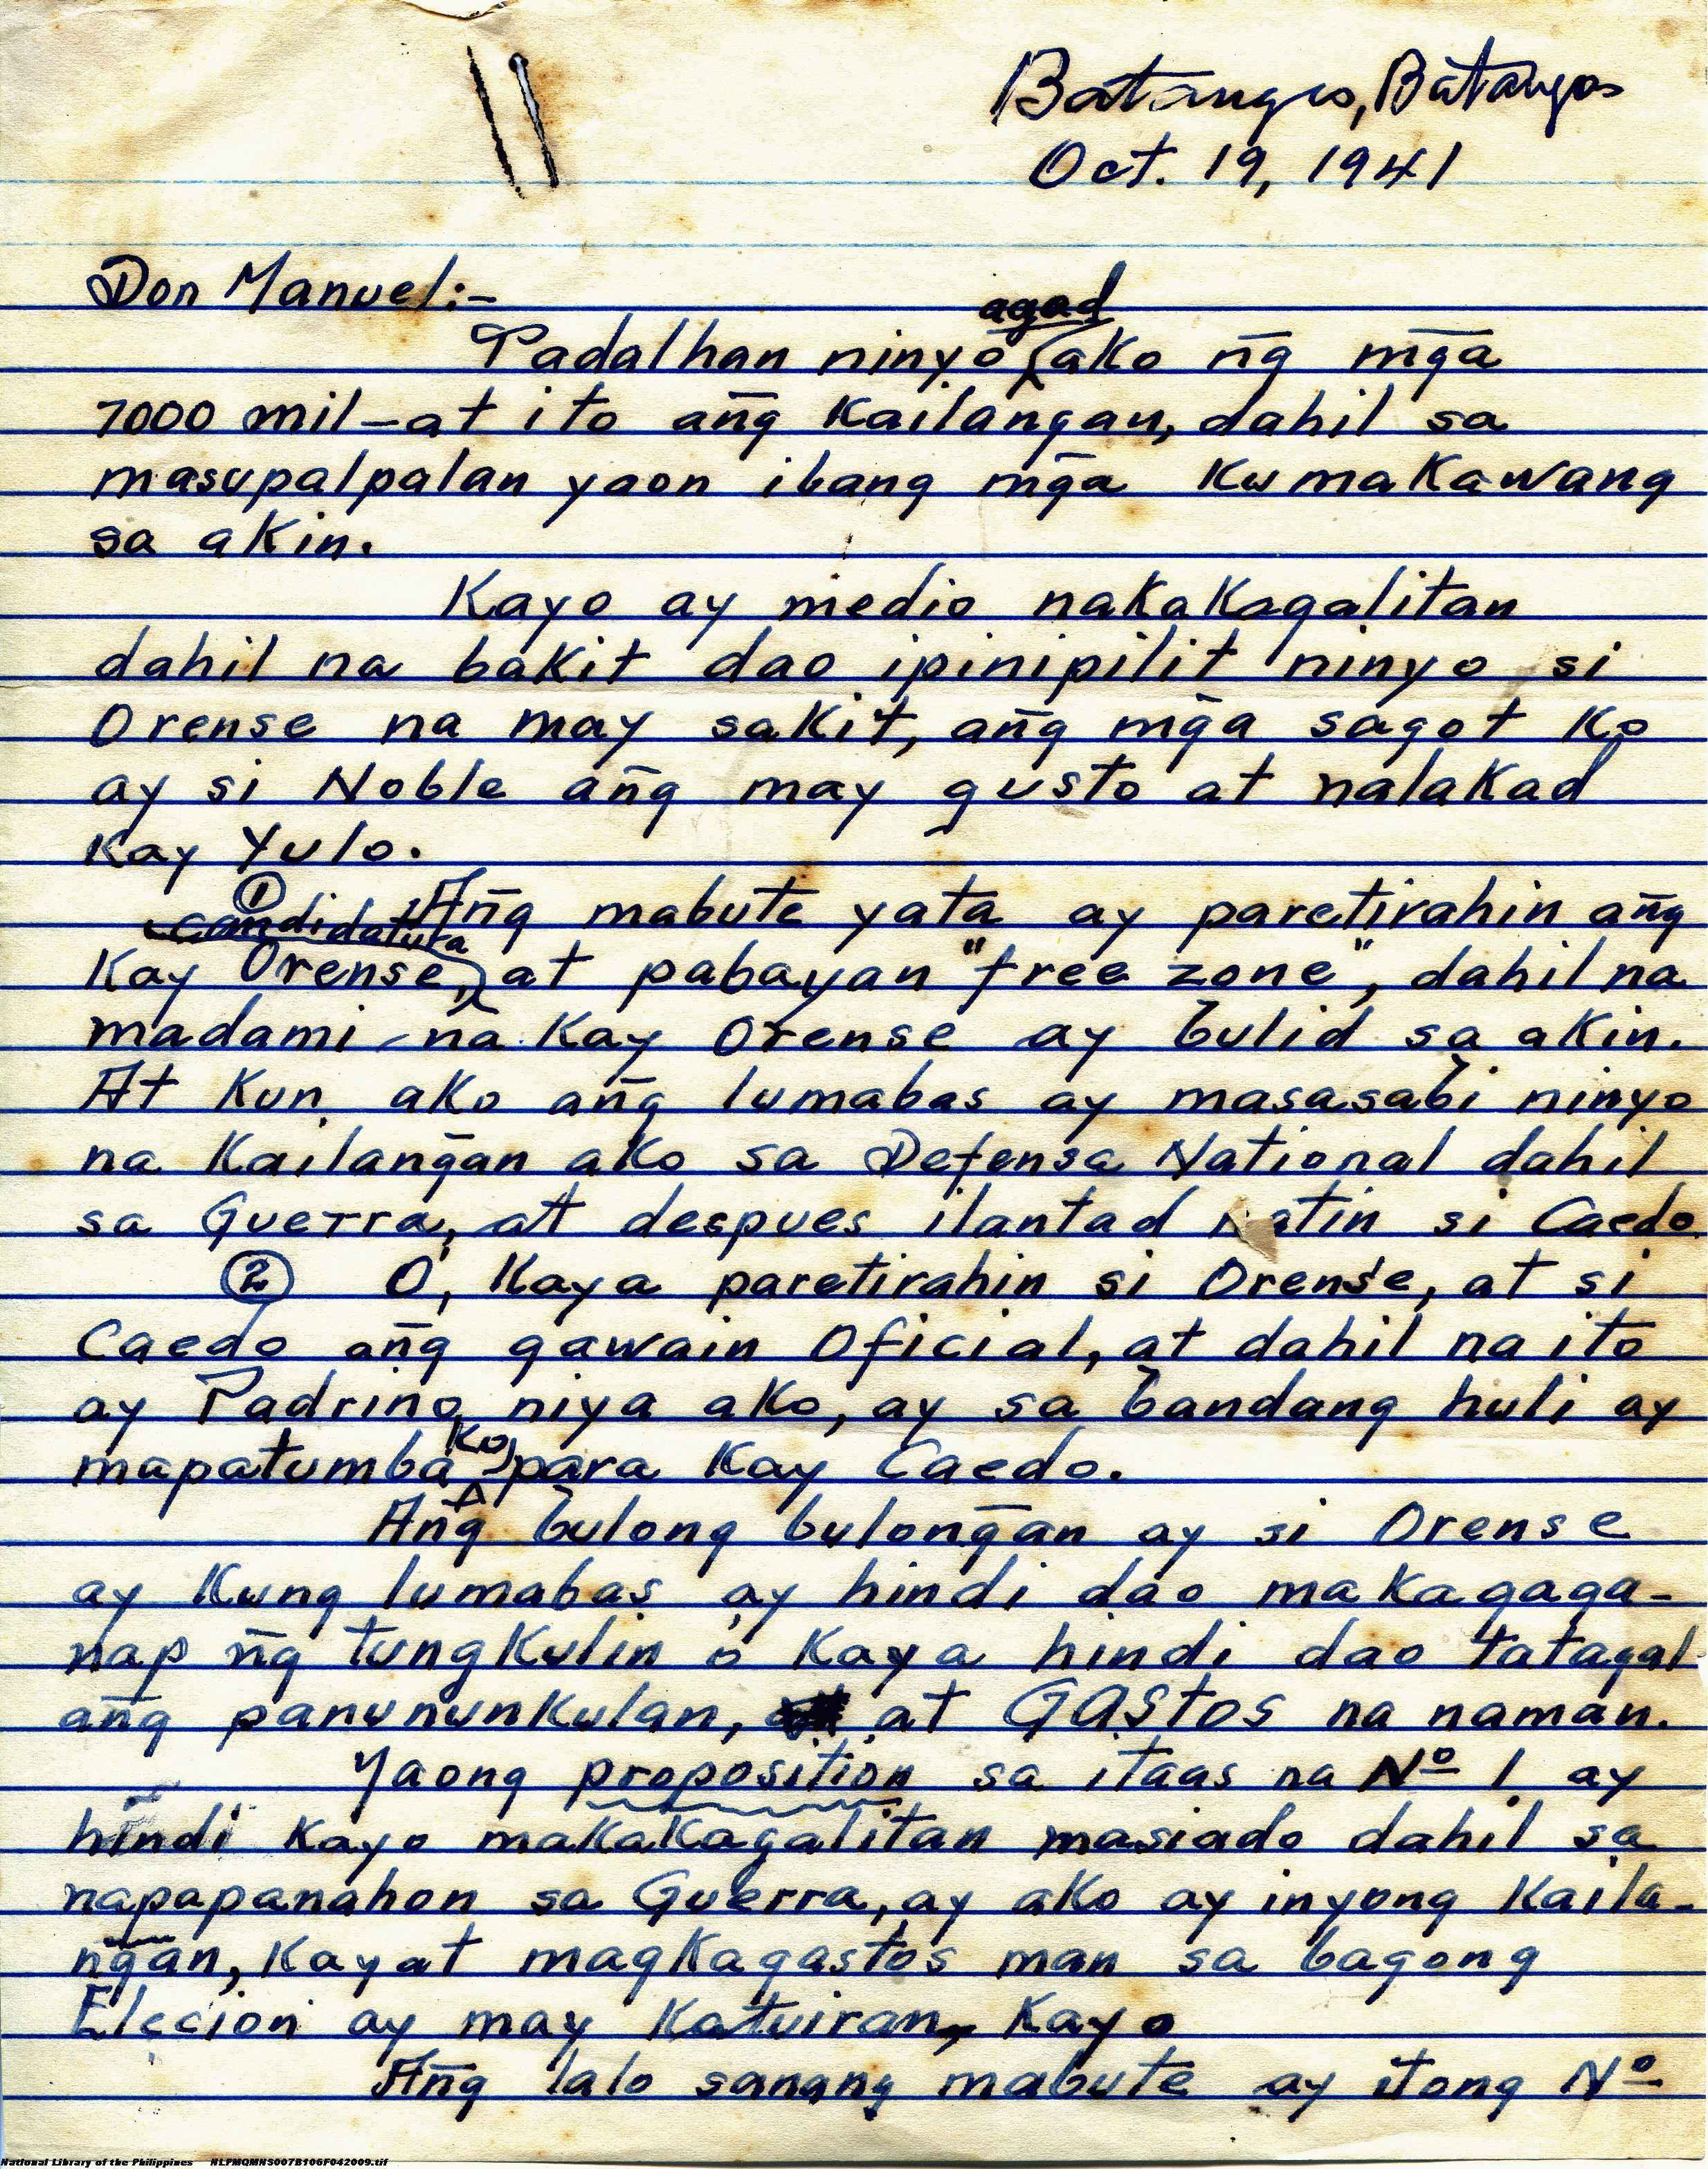 Batangas, Batangas
Oct. 19, 1941
Don Manuel:-
Padalhan ninyo agad ako ng̃ mg̃a
7000 mil - at ito ang̃ kailangan, dahil sa
masupalpalan yaon ibang mg̃a kumakawang
sa akin.
Kayo ay medio nakakagalitan
dahil na bakit dao ipinipilit ninyo si
Orense na may sakit, ang̃ mg̃a sagot ko
ay si Noble ang̃ may gusto at nalakad
kay Yulo.
① Ang̃ mabute yata ay paretirahin ang̃
candidatura
kay Orense, at pabayan "free zone", dahil na
madami na kay Orense ay bulid sa akin.
At kun ako ang̃ lumabas ay masasabi ninyo
na kailang̃an ako sa Defensa National dahil
sa Guerra, at despues ilantad natin si Caedo.
② O, kaya paretirahin si Orense, at si
Caedo ang̃ gawain Oficial, at dahil na ito
ay Padrino niya ako, ay sa bandang huli ay
mapatumba ko para kay Caedo.
Ang̃ bulong bulong̃an ay si Orense
ay kung lumabas ay hindi dao makagaga-
nap ng̃ tungkulin o kaya hindi dao tatagal
ang̃ panununkulan, at GAStos na naman.
Yaong proposition sa itaas na Nº 1 ay
hindi kayo makakagalitan masiado dahil sa
napapanahon sa Guerra, ay ako ay inyong kaila-
ng̃an, kayat magkagastos man sa bagong
Eleccion ay may katuiran, kayo
Ang̃ lalo sanang mabute ay itong Nº
National Library of the Philippines NLPMQMNS007B106F042009.tif